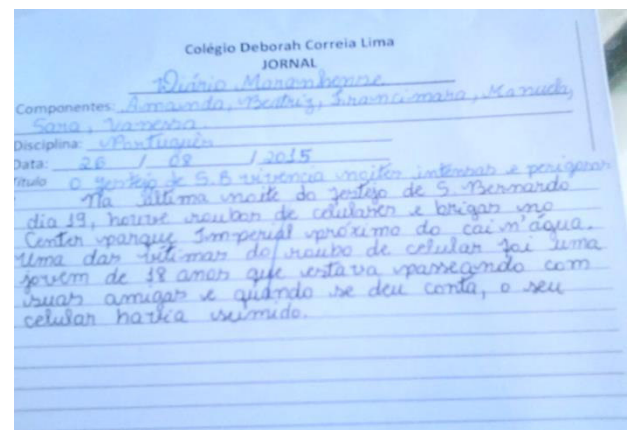 Colégio Deborah Correia Lima
JORNAL
Diário Maranhense
Componentes: Amanda, Beatriz, Francimara, Manuela,
Sara, Vanessa
Disciplina: Português
Data: 26 / 08 / 2015
Título O festejo de S.B vivencia noites intensas e perigosas
Na última noite do festejo de S. Bernardo
dia 19, houve roubos de celulares e brigas no
Center parque Imperial próximo do cai n'água.
Uma das vítimas do roubo de celular foi uma
jovem de 18 anos que estava passeando com
suas amigas e quando se deu conta, o seu
celular havia sumido.